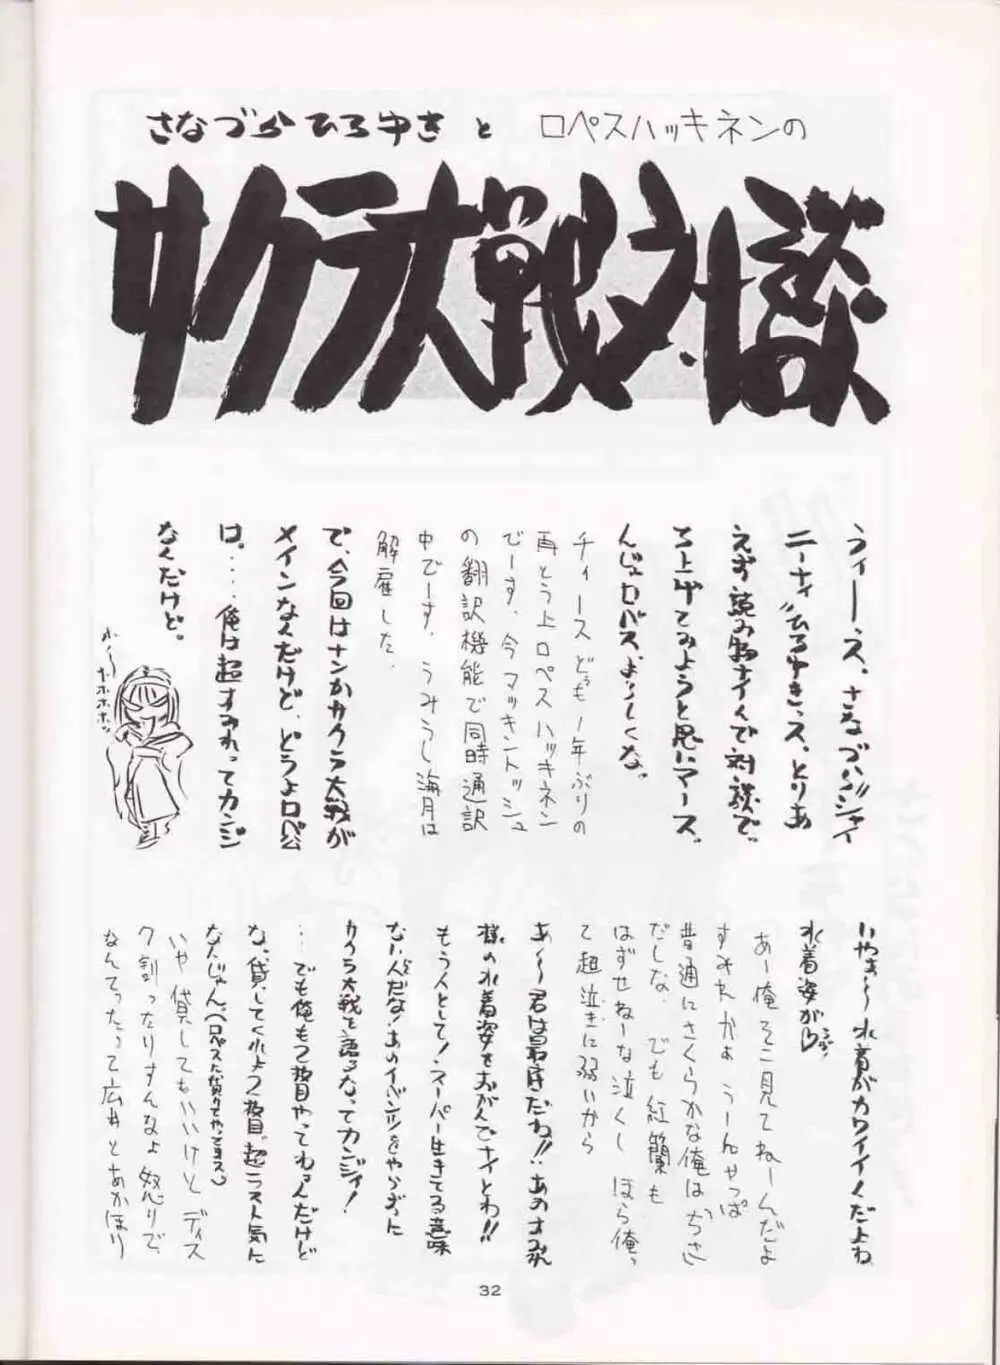 さなづらひろゆきと ロペスハッキネンの
サクラ大戦対談
うぃーーす、さなづらジャイ
ニーナイ"ひろゆきっス、とりあ
えず読み物ナイんで対談で。
ち上げてみようと思いマース。
んじゃロペス、よろしくな。
チィースどぅも1年ぶりの
再とう上ロペスハッキネン
でーす。今マッキントッシュ
の翻訳機能で同時通訳
中でーす。うみうし海月は
解雇した。
で、今回はナンかサクラ大戦が
メインなんだけど、どうよロペ公
は。‥‥俺は超すみれってカンジ
なんだけど。
ホ〜ホホホホッ
いやぁ〜水着がカワイイんだよね
水着姿が♡
あー俺そこ見てねーんだよ
すみれかぁ うーんやっぱ
普通にさくらかな俺は
だしな。でも紅蘭も
はずせねーな泣くし ほら俺っ
て超泣きに弱いから
あ〜〜君は最底だね!!あのすみれ
様の水着姿をおがんでナイとわ!!
もう人として!スーパー生きてる意味
ないんだな!あのイベントをやらずに
サクラ大戦を語るなってカンジィ!
‥‥でも俺も2枚目やってねぇんだけど
な、貸してくれよ2枚目。超ラスト気に
なんじゃん、
いや貸してもいいけど ディス
ク割ったりすんなよ 怒りで
なんてったって広井とあかほり
32